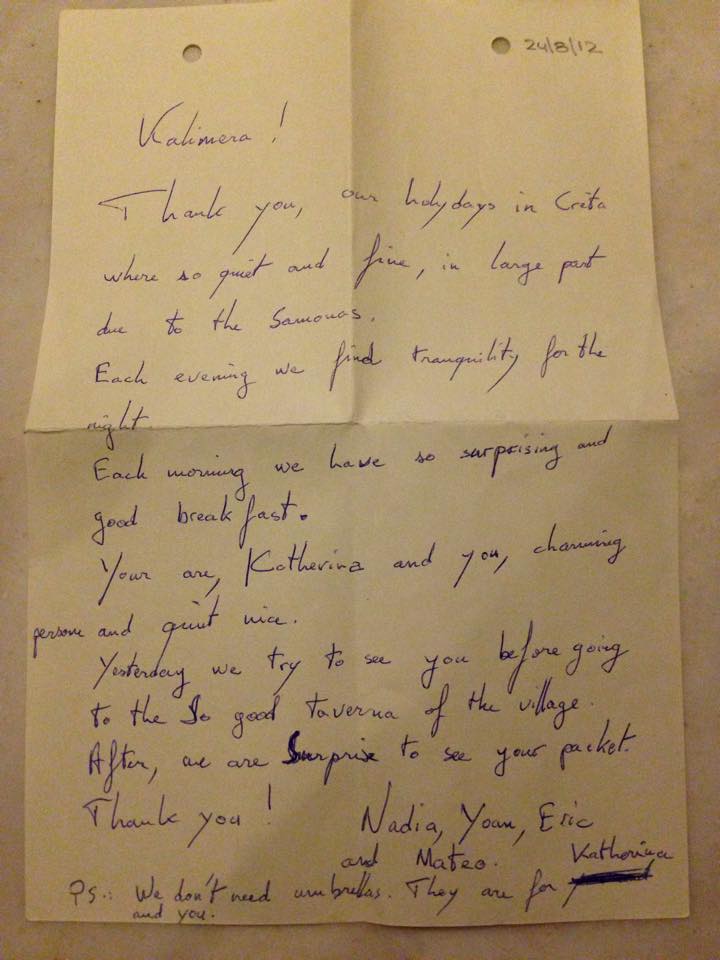 24/8/12
Kalimera !
Thank you, our holydays in Crèta
where so quiet and fine, in large part
due to the Samonas.
Each evening we find tranquility for the
night.
Each morning we have so surprising and
good breakfast.
Your are, Katherina and you, charming
persone and quiet nice.
Yesterday we try to see you before going
to the So good taverna of the village.
After, we are Surprise to see your packet.
Thank you !
Nadia, Yoan, Eric
and Mateo.
PS.: We don't need umbrellas. They are for Katherina
and you.